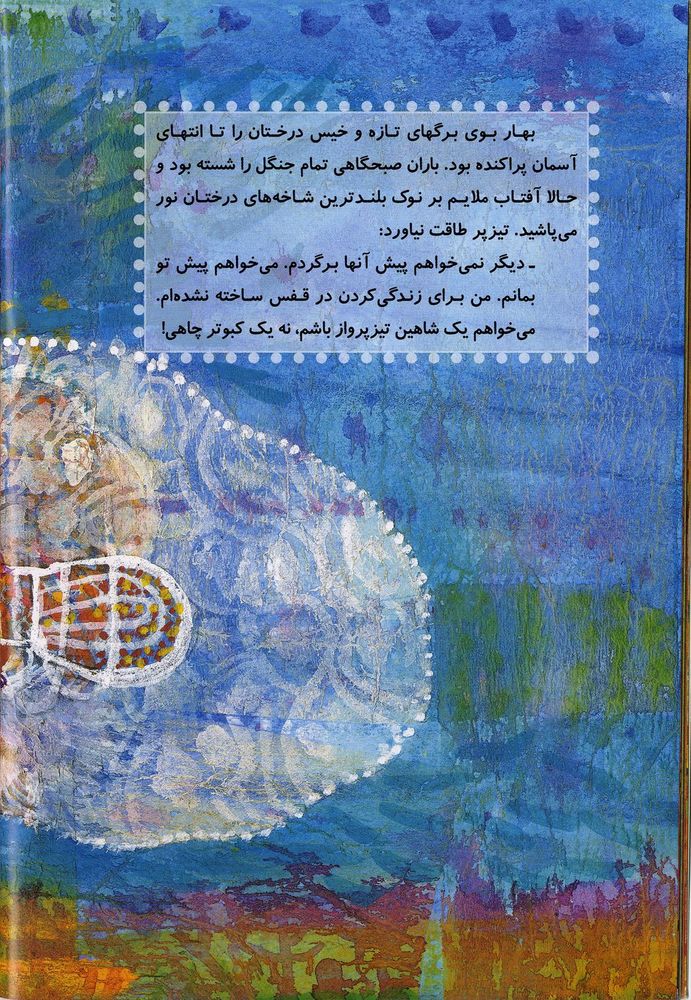 بهار بوی برگهای تازه و خیس درختان را تا انتهای
آسمان پراکنده بود. باران صبحگاهی تمام جنگل را شسته بود و
حالا آفتاب ملایم بر نوک بلندترین شاخه‌های درختان نور
می‌پاشید. تیزپر طاقت نیاورد:
ـ دیگر نمی‌خواهم پیش آنها برگردم. می‌خواهم پیش تو
بمانم. من برای زندگی‌کردن در قفس ساخته نشده‌ام.
می‌خواهم یک شاهین تیزپرواز باشم، نه یک کبوتر چاهی!